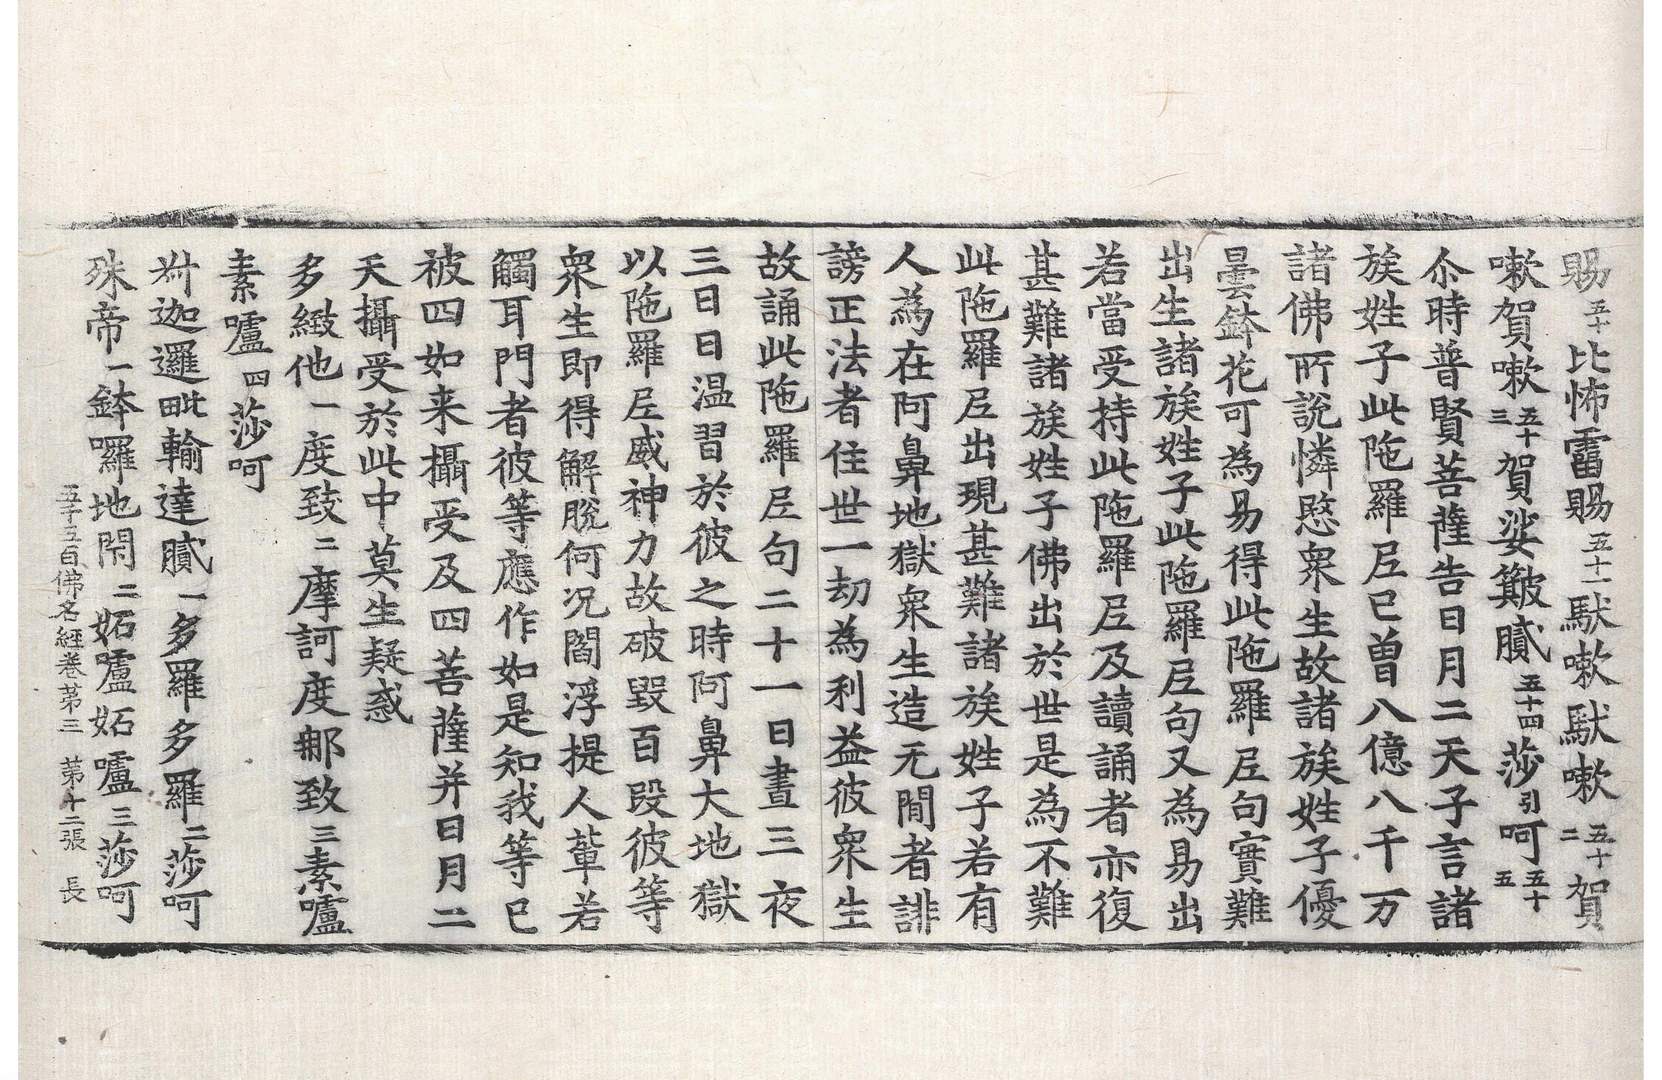 賜五十比怖雷賜五十一馱嗽馱嗽五十二賀
嗽賀嗽五十三賀娑簸膩五十四莎引呵五十五
尒時普賢菩薩告日月二天子言諸
族姓子此陁羅𡰱已曾八億八千万
諸佛所說憐愍衆生故諸族姓子優
曇鉢花可為易得此陁羅𡰱句實難
出生諸族姓子此陁羅𡰱句又為易出
若當受持此陁羅𡰱及讀誦者亦復
甚難諸族姓子佛出於世是為不難
此陁羅𡰱出現甚難諸族姓子若有
人為在阿鼻地獄衆生造无閒者誹
謗正法者住世一劫為利益彼衆生
故誦此陁羅𡰱句二十一日晝三夜
三日日温習於彼之時阿鼻大地獄
以陁羅𡰱威神力故破毀百段彼等
衆生即得解脫何況閻浮提人輩若
觸耳門者彼等應作如是知我等已
被四如来攝受及四菩薩并日月二
天攝受於此中莫生疑惑
多緻他一度致二摩訶度郍致三素嚧
素嚧四莎呵
迦邏毗輸達膩一多羅多羅二莎呵
殊帝一鉢囉地閇二妬嚧妬嚧三莎呵
五千五百佛名經卷第三 第十二張 長